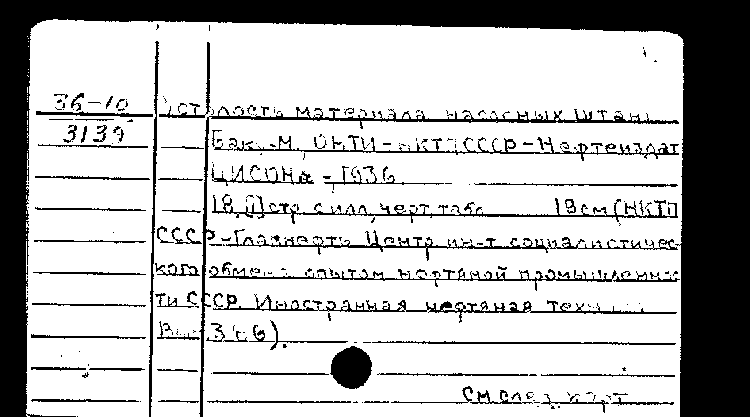 36-10
3139
Усталость материала насосных штанг
Баку-М, ОНТИ-НКТП СССР-Нефтеиздат
ЦИСОНа-1936
18, [1] стр. с илл, черт, табл 19 см (НКТП
СССР-Главнефть Центр ин-т социалистичес
кого обмена опытом нефтяной промышленнос
ти СССР. Иностранная нефтяная техника
См след. карт